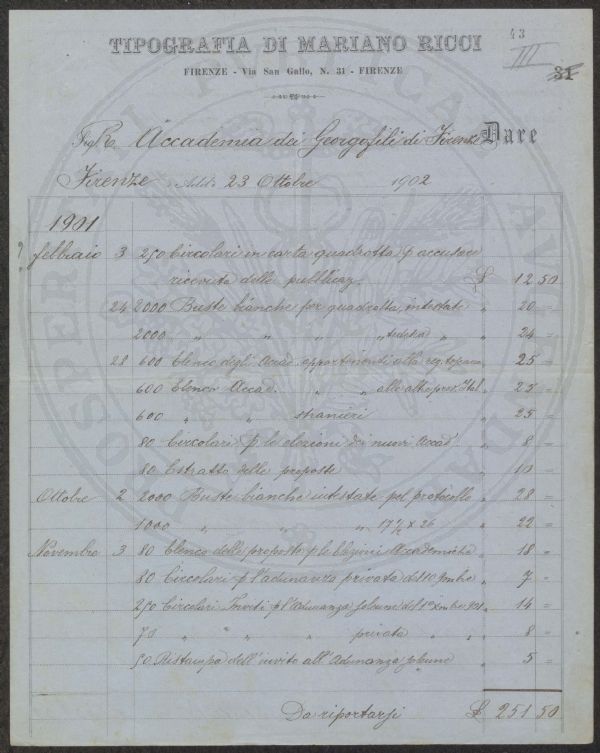 43
III
31
TIPOGRAFIA DI MARIANO RICCI
FIRENZE - Via San Gallo, N. 31 - FIRENZE
Accademia dei Georgofili di Firenze Dare
Firenze Addì 23 Ottobre 1902
1901
? febbraio 3 250 Circolari in carta quadrotta p accusare
ricevuta delle pubblicaz. £ 12 50
24 2000 Buste bianche per quadrotta, intestate " 20 =
2000 " " " " " 24 =
28 600 Elenco degli Accad. appartenenti alla reg. " 25 =
600 Elenco Accad. " " alle altre prov. Ital. " 25 =
600 " " stranieri " 25 =
80 Circolari p le elezioni dei nuovi Accad. " 8 =
80 Estratto delle proposte " 10 =
Ottobre 2 2000 Buste bianche intestate pel protocollo " 28 =
1000 " " " 17 ½ X 26 " 22 =
Novembre 3 80 Elenco delle proposte p le Elezioni Accademiche " 18 =
80 Circolari p l'adunanza privata del 10 " 7 =
250 Circolari Inviti p l'Adunanza solenne del 901 " 14 =
70 " " " " privata " " 8 =
50 Ristampa dell'invito all'Adunanza solenne " 5 =
Da riportarsi £ 251 50
PROSPERITATI PUBLICAE AVGENDAE